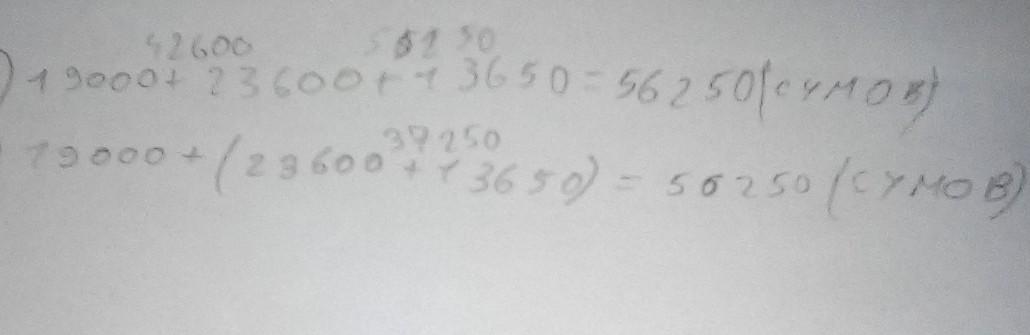 42600 56250
) 19000 + 23600 + 13650 = 56250 (СУМОВ)
37250
19000 + (23600 + 13650) = 56250 (СУМОВ)